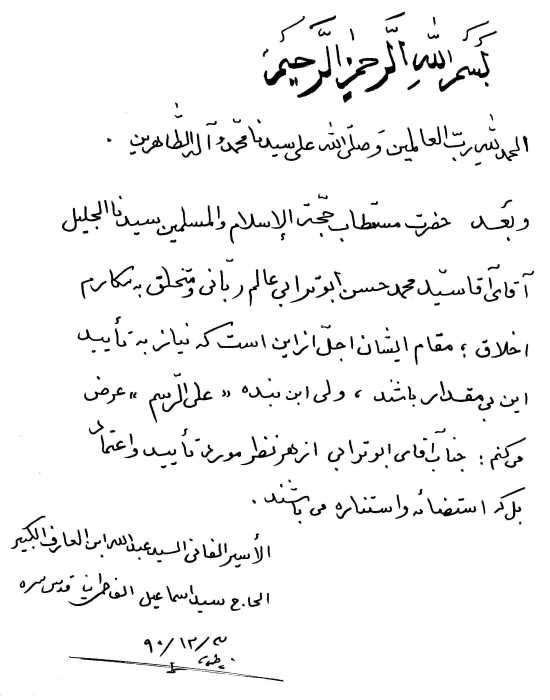 بسم الله الرحمن الرحیم
الحمد لله رب العالمین وصلّی الله علی سیدنا محمّد و آله الطّاهرین .
وبعد حضرت مستطاب حجّة الإسلام والمسلمین سیدنا الجلیل
آقای آقا سیّد محمد حسن ابوترابی عالم ربّانی و متخلق به مکارم
اخلاق ؛ مقام ایشان اجلّ از این است که نیاز به تأیید
این بی مقدار باشند ، ولی این بنده «علی الرسم» عرض
می کنم : جناب آقای ابوترابی از هر نظر مورد تأیید و اعتماد
بل که استضائه و استناره می باشند .
الأسیر الفانی السید عبدالله ابن العارف الکبیر
الحاج سید اسماعیل قدس سره
۹۰/۱۲/۳